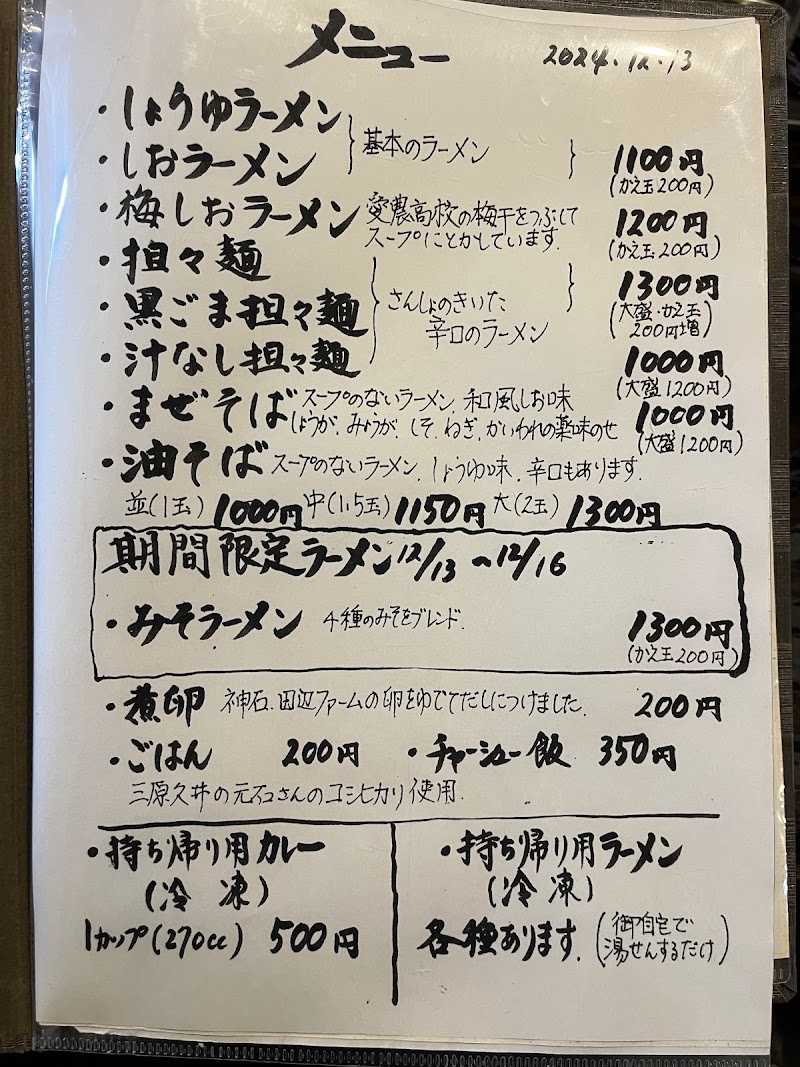 メニュー 2024.12.13
・しょうゆラーメン
・しおラーメン
基本のラーメン
1100円
(かえ玉200円)
・梅しおラーメン
愛農高校の梅干をつぶして
スープにとかしています.
1200円
(かえ玉200円)
・担々麺
・黒ごま担々麺
さんしょのきいた
辛口のラーメン
1300円
(大盛・かえ玉
200円増)
・汁なし担々麺
1000円
(大盛1200円)
・まぜそば
スープのないラーメン.和風しお味
しょうが.みょうが.しそ.ねぎ.かいわれの薬味のせ
1000円
(大盛1200円)
・油そば スープのないラーメン.しょうゆ味.辛口もあります.
並(1玉) 1000円 中(1.5玉) 1150円 大(2玉) 1300円
期間限定ラーメン12/13〜12/16
・みそラーメン 4種のみそをブレンド. 1300円
(かえ玉200円)
・煮卵 神石.田辺ファームの卵をゆでてだしにつけました. 200円
・ごはん 200円 ・チャーシュー飯 350円
三原久井の元石さんのコシヒカリ使用.
・持ち帰り用カレー
(冷凍)
1カップ(270cc) 500円
・持ち帰り用ラーメン
(冷凍)
各種あります.
(御自宅で
湯せんするだけ)